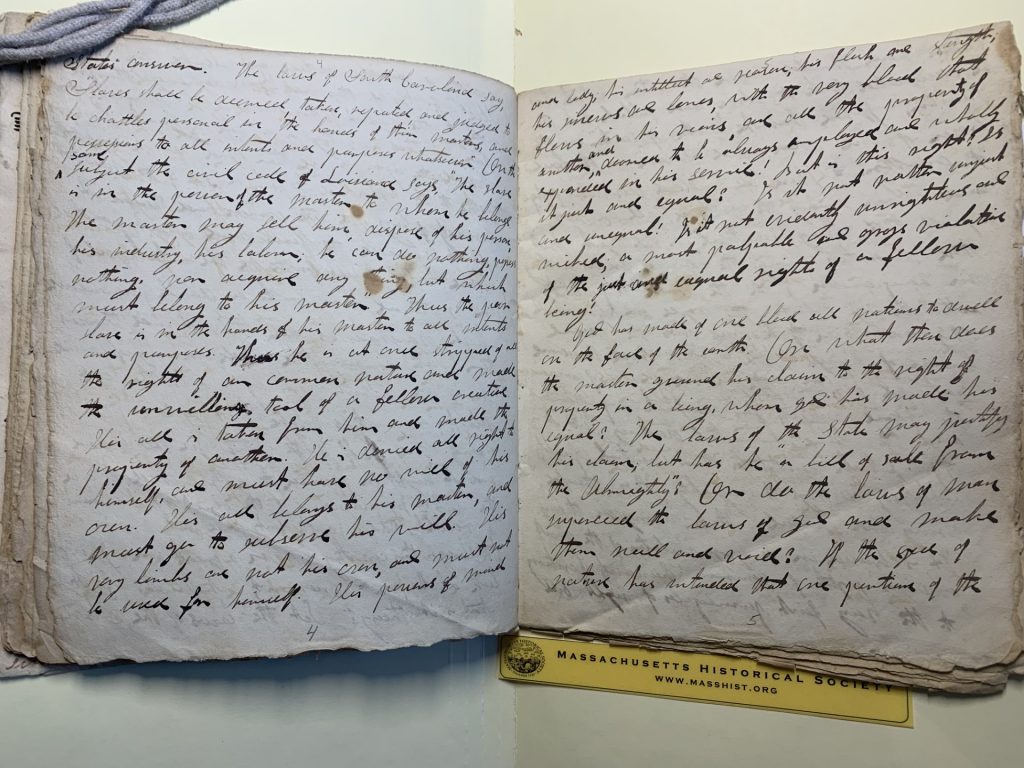 States' consuem. The laws "of South Carolina say
"Slaves shall be deemed taken, reputed and judged to
be chattles personal in the hands of their masters, and
possessors to all intents and purposes whatsoever" On the
same
subject the civil code of Loisiana says, "The slave
is in the power of the master to whom he belongs
The master may sell him, dispose of his person,
his industry, his labor; he can do nothing, possess
nothing, nor acquire any thing, but which
must belong to his master" Thus the poor
slave is in the hands of his master to all intents
and purposes. Thus he is at once stripped of all
the rights of our common nature and made
the unwilling tool of a fellow creature
His all is taken from him and made the
property of another. He is denied all right to
himself, and must have no will of his
own. His all belongs to his master, and
must go to subserve his will. His
very limbs are not his own, and must not
be used for himself. His powers of mind
4
and body, his intellect and reason, his flesh and strength,
his sinews and bones, with the very blood that
flows in his veins, are all the property of
another, and doomed to be always employed and wholly
expended in his service! But is this right? Is
it just and equal? Is it not rather unjust
and unequal! Is it not evidently unrighteous and
wicked; a most palpable and gross violation
of the just and equal rights of a fellow
being?
God has made of one blood all nations to dwell
on the face of the earth. On what then does
the master ground his claim to the right of
property in a being, whom god has made his
equal? The laws of the State may justify
his claim, but has he "a bill of sale from
the Almighty"? Or do the laws of man
supercede the laws of god and make
them null and void? If the god of
nature has intended that one portion of the
5
MASSACHUSETTS HISTORICAL SOCIETY
WWW.MASSHIST.ORG